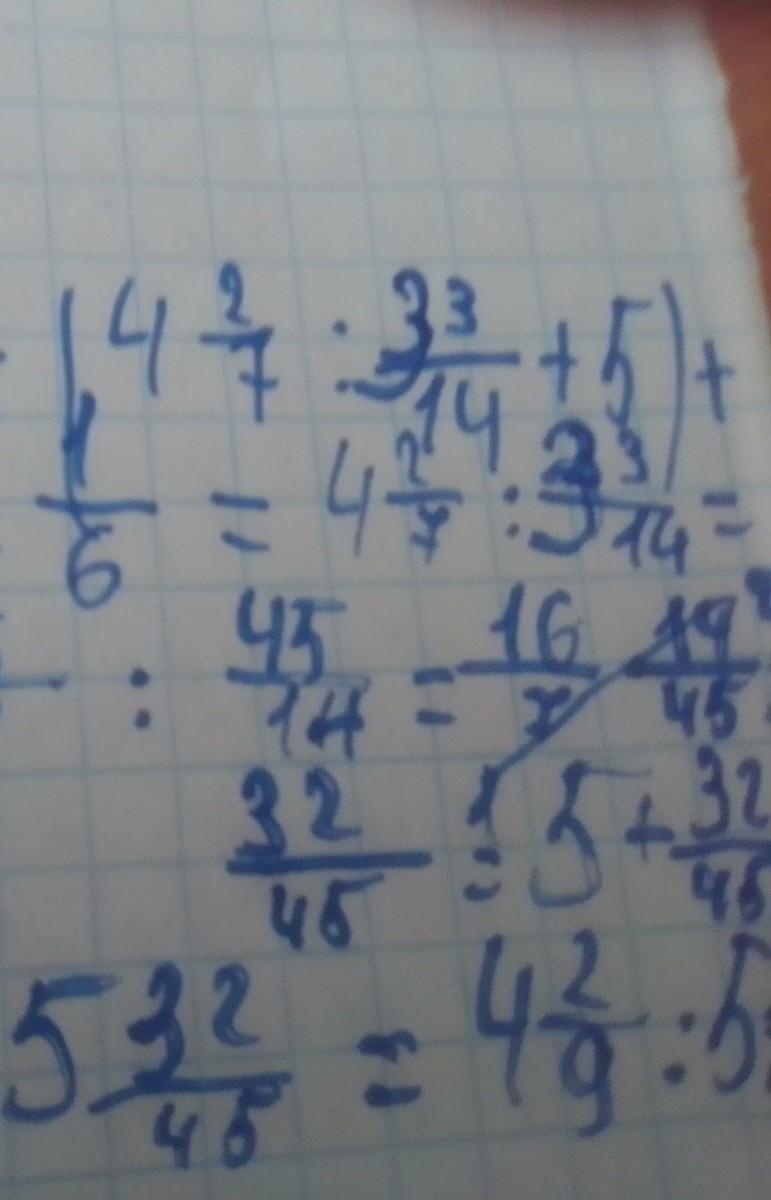 (4 2/7 : 3 3/14 + 5) +
1/6 = 4 2/7 : 3 3/14 =
: 45/14 = 16/7 14/45
32/45 = 5 + 32/45
5 32/45 = 4 2/9 : 5